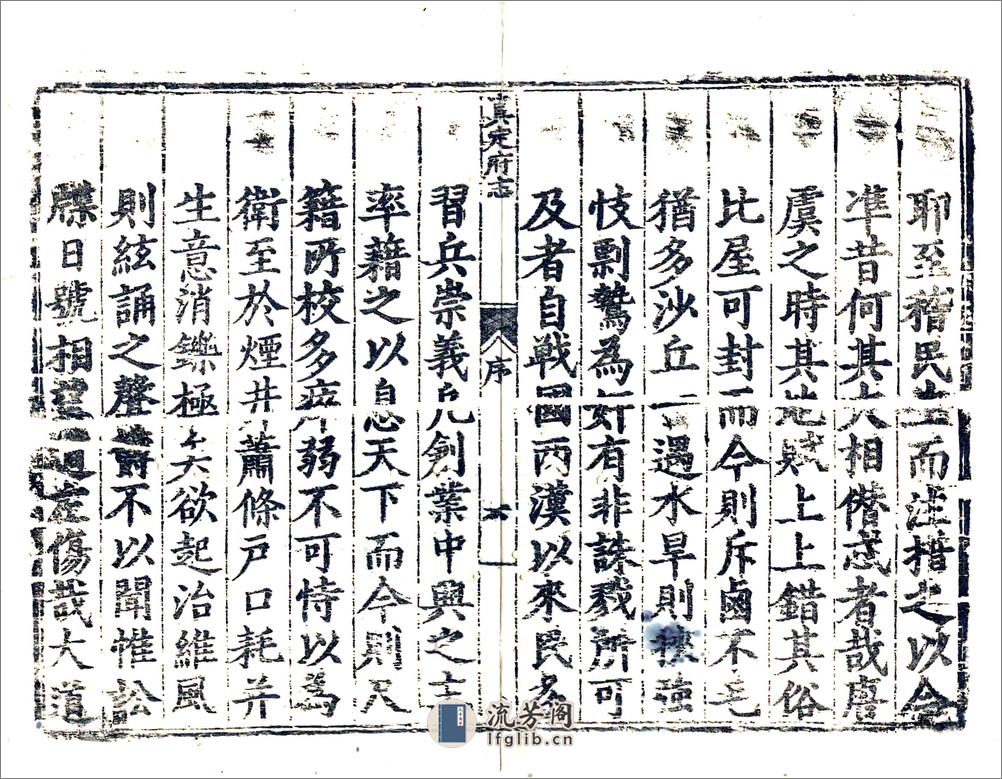 耶至稽民生而注措之以今
準昔何其大相僭忒者哉唐
虞之時其地賦上上錯其俗
比屋可封而今則斥鹵不毛
猶多沙丘一遇水旱則強
忮剽驁為奸有非誅戮所可
及者自戰國两漢以來民多
真定府志
序
習兵崇義凡創業中興之主
率藉之以息天下而今則尺
籍所校多疲弱不可恃以為
衛至於煙井蕭條户口耗并
生意消鑠極矣欲起治維風
則絃誦之聲不以聞惟訟
牒日號相望道左傷哉大道
流芳阁
lfglib.cn